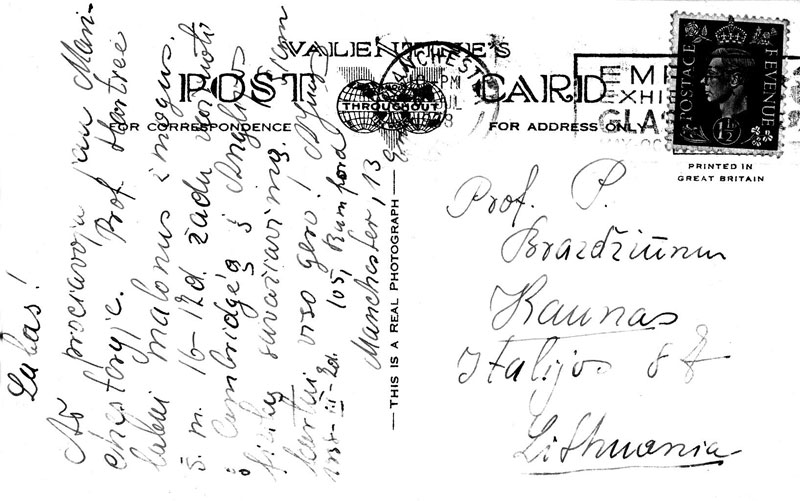 VALENTINE'S
POST CARD
THROUGHOUT
FOR CORRESPONDENCE
FOR ADDRESS ONLY
MANCHESTER
PM
38
EMP
EXHI
GLA
POSTAGE REVENUE
1½
PRINTED IN
GREAT BRITAIN
THIS IS A REAL PHOTOGRAPH
Labas!
Aš jau Man-
chesteryje. Prof. Hartree
labai malonus žmogus.
š. m. 16-12d. žadu
į Cambridge'ą į Anglijos
suvažiavimą. Tam
kartui viso gero!
105, Rumford
Manchester, 13
Prof. P.
Brazdžiūnui
Kaunas
Italijos 8
Lithuania